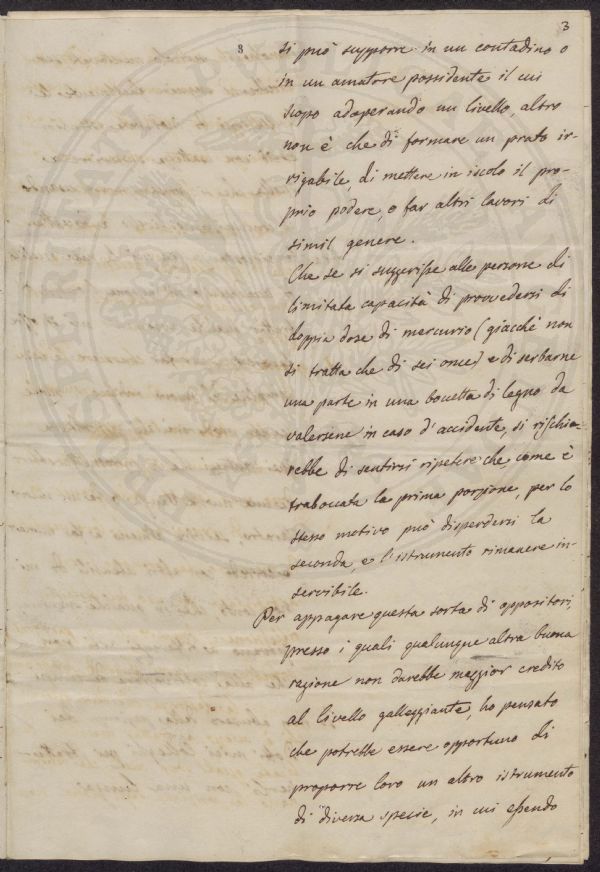 3
8
si può supporre in un contadino o
in un amatore possidente il cui
scopo adoperando un livello, altro
non è che di formare un prato ir-
rigabile, di mettere in iscolo il pro-
prio podere, o far altri lavori di
simil genere.
Che se si suggerisse alle persone di
limitata capacità di provvedersi di
doppia dose di mercurio (giacchè non
si tratta che di sei once) e di serbarne
una parte in una boccetta di legno da
valersene in caso d'accidente, si rischia-
rebbe di sentirsi ripetere che, come è
traboccata la prima porzione, per lo
stesso motivo può disperdersi la
seconda, e l'istrumento rimanere in-
servibile.
Per appagare questa sorta di oppositori,
presso i quali qualunque altra buona
ragione non darebbe maggior credito
al livello galleggiante, ho pensato
che potrebbe essere opportuno di
proporre loro un altro istrumento
di diversa specie, in cui essendo